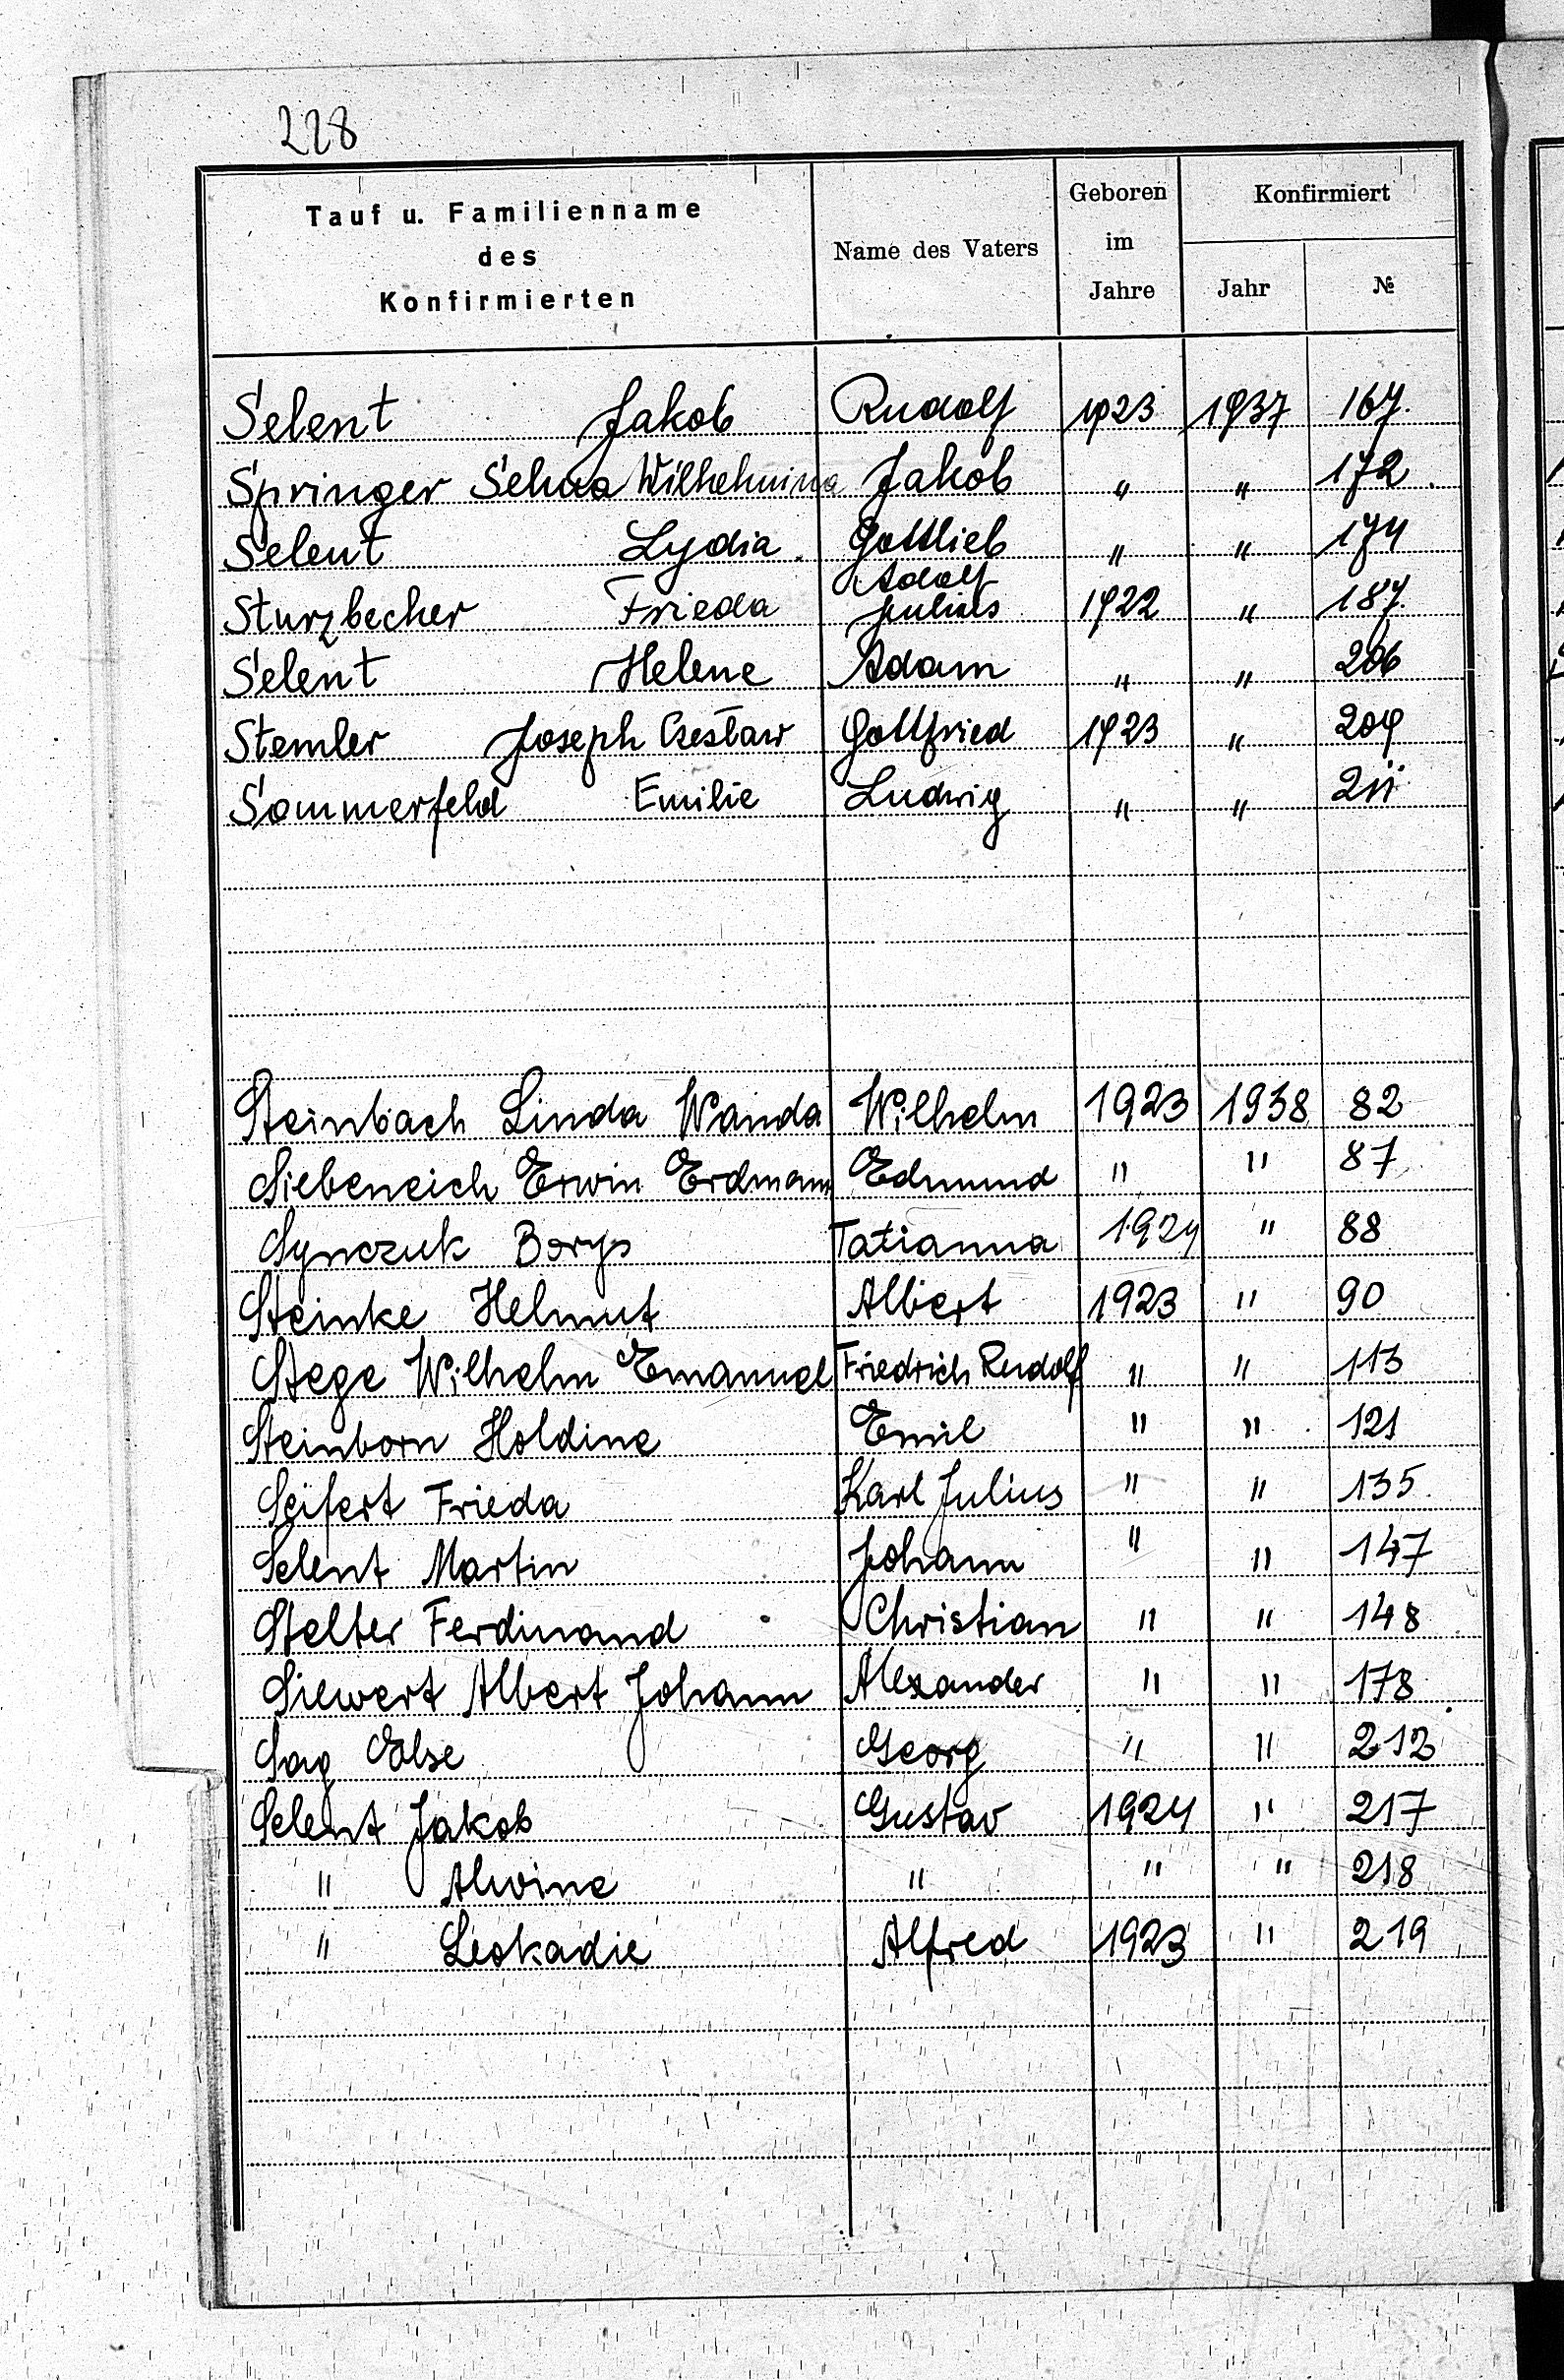 228
Tauf u. Familienname des Konfirmierten | Name des Vaters | Geboren im Jahre | Konfirmiert Jahr | №
Selent Jakob Rudolf 1923 1937 167.
Springer Selma Wilhelmina Jakob " " 172.
Selent Lydia. Gottlieb " " 174
Sturzbecher Frieda Adolf Julius 1922 " 187.
Selent Helene Adam " " 206
Stemler Joseph Czesław Gottfried 1923 " 209
Sommerfeld Emilie Ludwig " " 211
Steinbach Linda Wanda Wilhelm 1923 1938 82
Siebeneich Erwin Erdmann Edmund " " 87
Synczuk Borys Tatianna 1924 " 88
Steinke Helmut Albert 1923 " 90
Stege Wilhelm Emanuel Friedrich Rudolf " " 113
Steinborn Holdine Emil " " 121
Seifert Frieda Karl Julius " " 135.
Selent Martin Johann " " 147
Stelter Ferdinand Christian " " 148
Siewert Albert Johann Alexander " " 178
Sag Else Georg " " 212
Selent Jakob Gustav 1924 " 217
" Alwine " " " 218
" Leokadie Alfred 1923 " 219